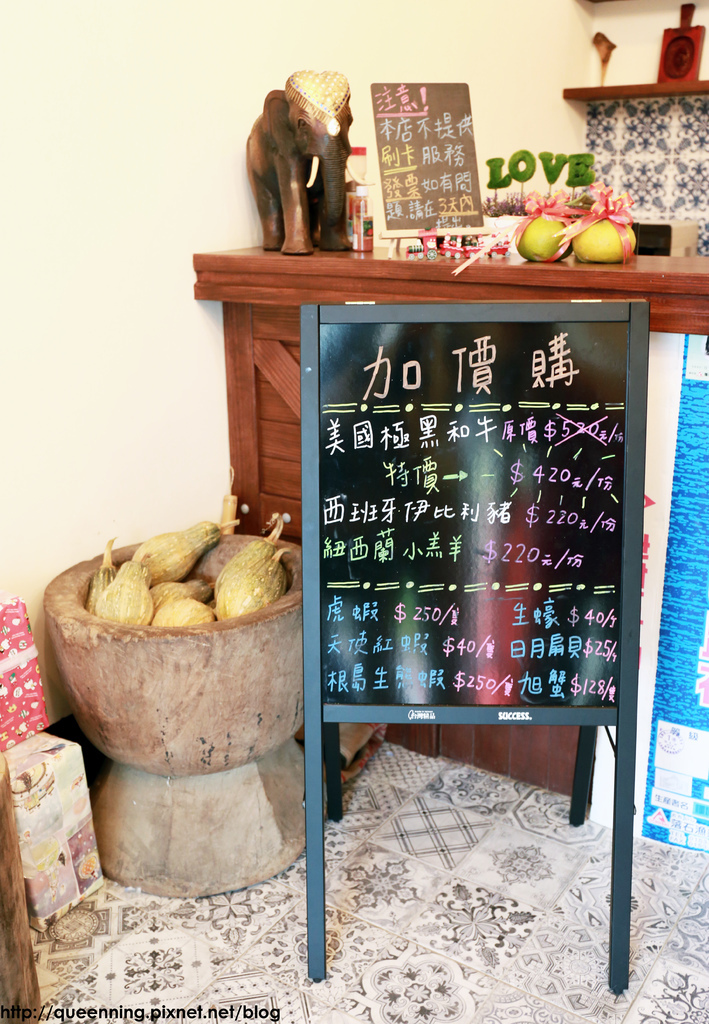 注意!
本店不提供
刷卡服務
發票如有問
題,請在3天內
LOVE
加價購
美國極黑和牛 原價$520元/份
特價→ $420元/份
西班牙伊比利豬 $220元/份
紐西蘭小羔羊 $220元/份
虎蝦 $250/隻 生蠔 $40/個
天使紅蝦 $40/隻 日月扇貝 $25/個
根島生態蝦 $250/隻 旭蟹 $128/隻
SUCCESS.
http://queenning.pixnet.net/blog